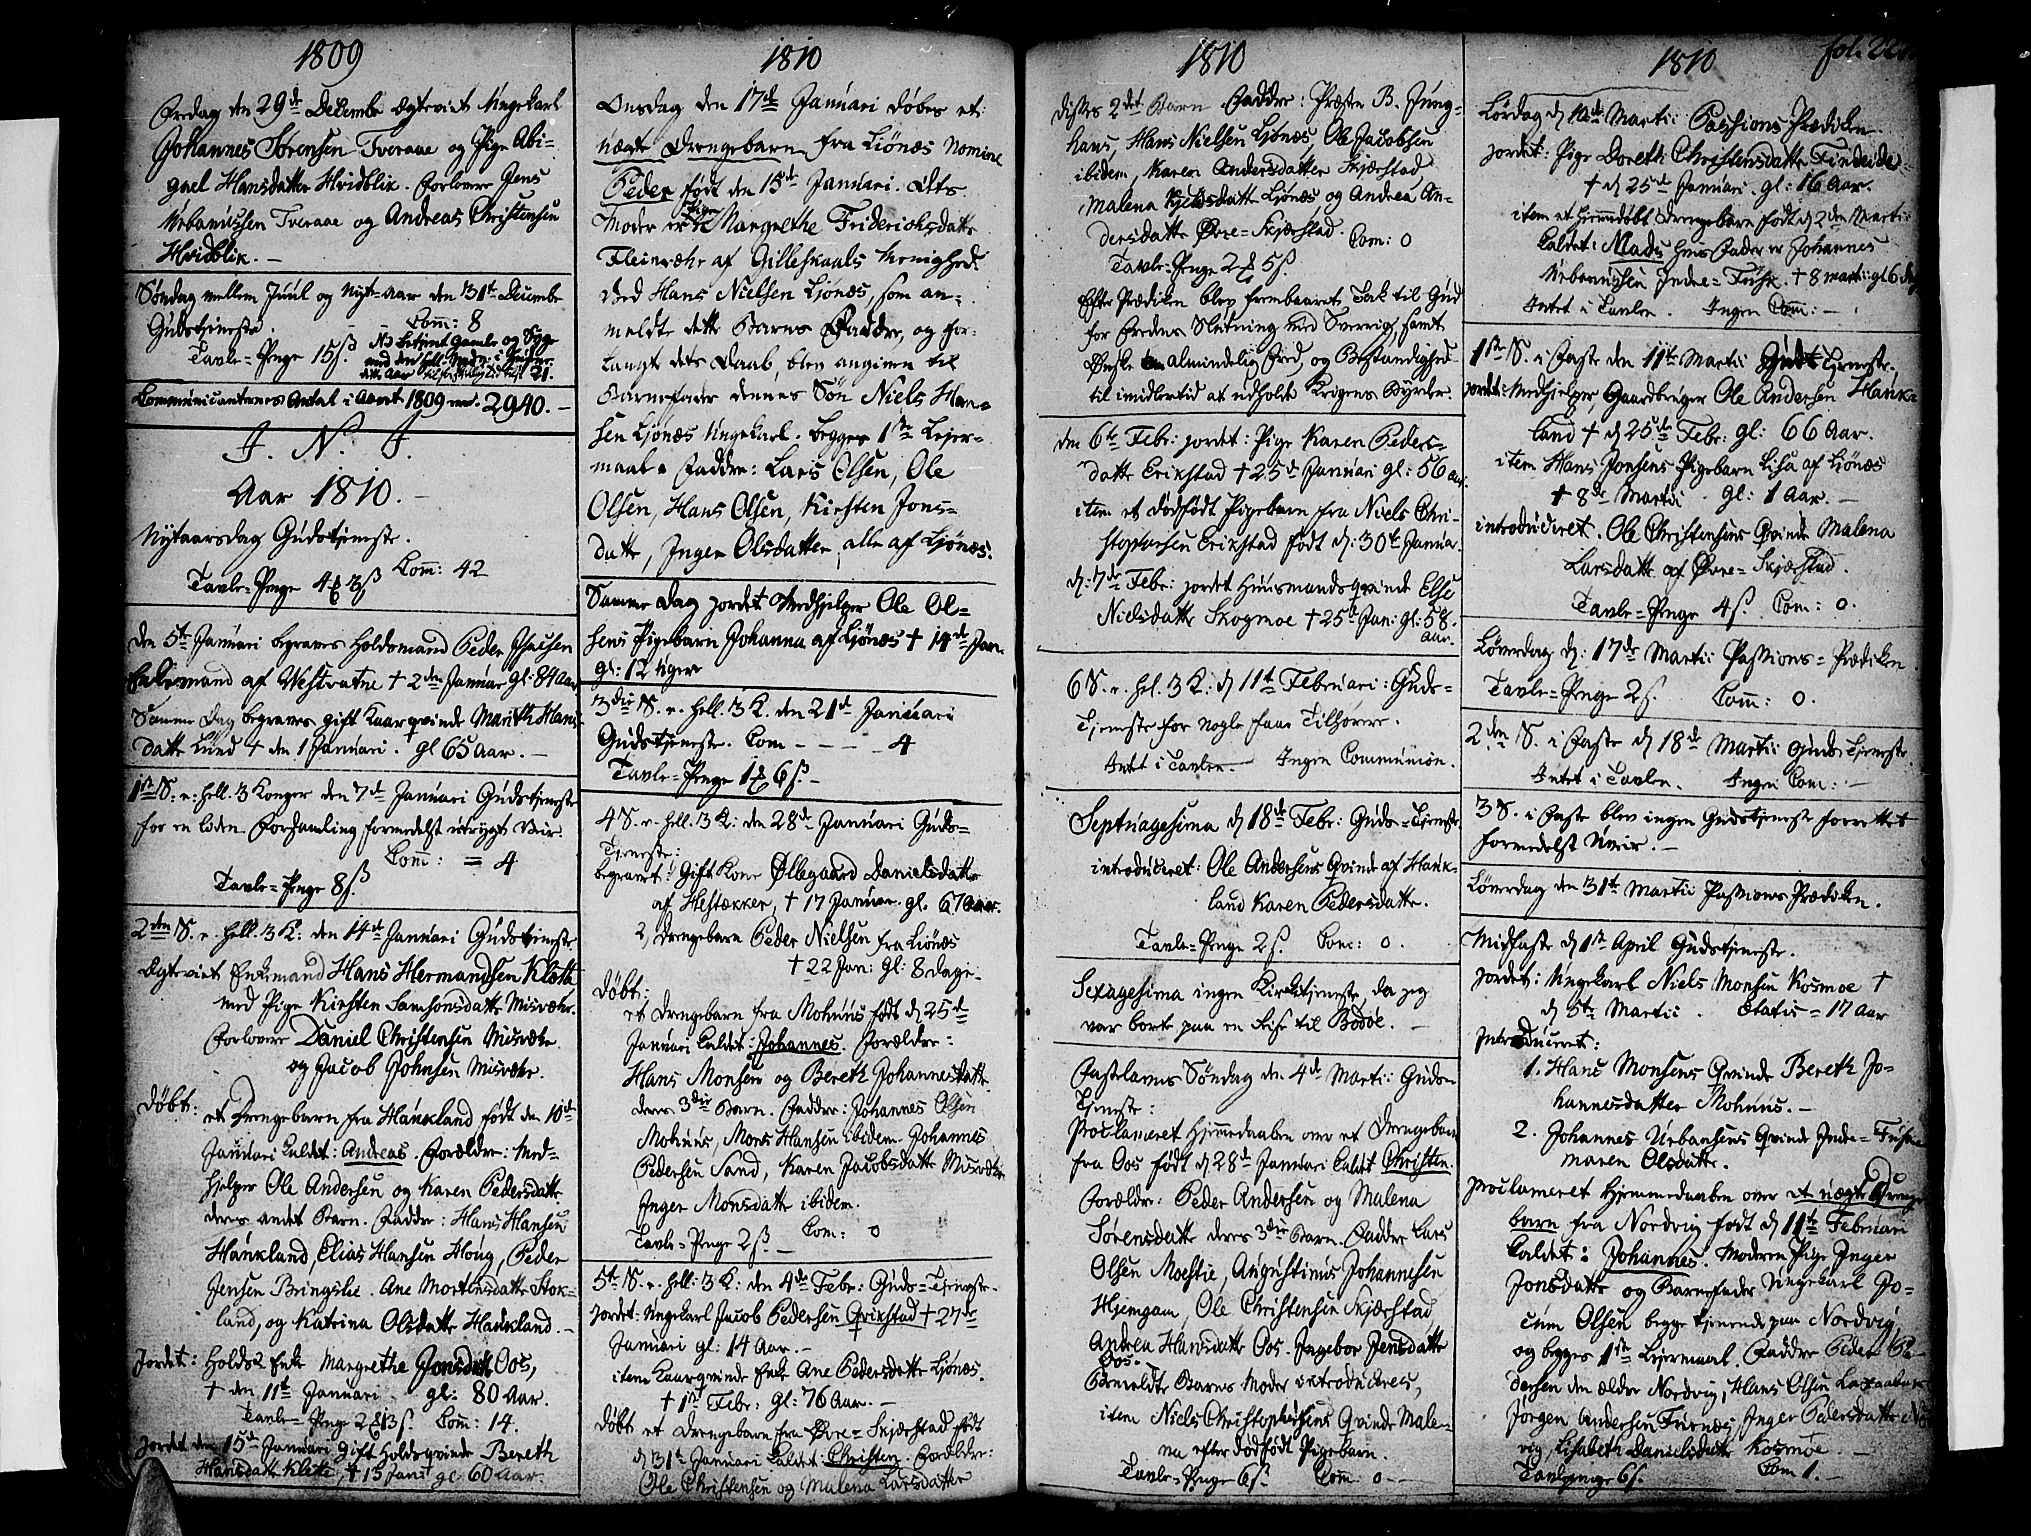 1809
Fredag den 29de Decembr Ægteviet Ungekarl
Johannes Sørensen Tveraae og Pige Abi-
gael Hansdatter Hvidblik. Forlover Jens
Urbanussen Tveraae og Andreas Christensen
Hvidblik. -
Søndag mellem Juul og Nyt-Aar den 31te Decembr
Gudstjeneste. Com: 8
Tavle-Penge 15 ß.
Gamle og Syge
21.
Communicanternes Antal i Aaret 1809 2940. -
J. N. J.
Aar 1810. -
Nytaarsdag Gudstjeneste.
Tavle-Penge 4 3 ß Com: 42
den 5te Januari begraves Holdsmand Peder
Enkemand af Westvatne † 2den Januar gl: 84 Aar
Samme Dag begraves gift Kaarqvinde Marith Hans-
datter Lund † den 1 Januari. gl 65 Aar. -
1ste S. e. Hell. 3 Konger den 7de Januari Gudstjeneste
for en liden Forsamling formedelst utrygt Veir.
Com: = 4
Tavle-Penge 8 ß.
2den S. e. Hell. 3 K: den 14de Januari Gudstjeneste
Ægteviet Enkemand Hans Hermandsen Klætte
med Pige Kirsten Samsonsdatter Misvær.
Forlovere Daniel Christensen Misvær
og Jacob Johnsen Misvær.
Døbt:
et Drengebarn fra Haukland født den 10de
Januari kaldet: Andreas. Forældre: Med-
hjelper Ole Andersen og Karen Pedersdatter
deres andet Barn. Faddre: Hans Hansen
Haukland, Elias Hansen Houg, Peder
Jensen Bringslie. Ane Mortensdatter Stok-
land, og Katrina Olsdatter Haukland. -
Jordet: Holds Enke Margrethe Jonsdatter Oos,
† den 11te Januari. gl: 80 Aar.
Tavle-Penge 2 13 ß. Com: 14.
Jordet den 15de Januari gift Holdsqvinde Bereth
Hansdatter Klætte, † 13 Januari gl 60 Aar.
1810
Onsdag den 17de Januari døbes et:
uægte Drengebarn fra Ljønæs Nomine
Peder født den 15de Januari. Dets
Moder er Pige Margrethe Friderichsdatter
Fleinvær af Gilleskaals Menighed.
Ved Hans Nielsen Ljønæs, som an-
meldte dette Barns Faddre, og for-
langte dets Daab, blev angiven til
Barnefader dennes Søn Niels Han-
sen Ljønæs Ungekarl. begges 1ste Lejer-
maal. Faddre: Lars Olsen, Ole
Olsen, Hans Olsen, Kirsten Jons-
datter, Inger Olsdatter, alle af Ljønæs.
Samme Dag jordet Medhjelper Ole Ol-
sens Pigebarn Johanna af Ljønæs † 14de Jan.
gl: 12 Uger
3die S. e. Hell. 3 K. den 21de Januari
Gudstjeneste. Com - - - - 4
Tavle-Penge 1 6 ß. -
4 S. e. Hell. 3 K: den 28de Januari Guds-
Tjeneste:
begravet: Gift Kone Øllegaard Danielsdatter
af Hestækker, † 17 Januar. gl. 67 Aar.
2, Drengebarn Peder Nielsen fra Ljønæs
† 22 Jan: gl: 8 Dage. -
Døbt:
et Drengebarn fra Mohuus født d 25de
Januari kaldet: Johannes. Forældre:
Hans Monsen og Bereth Johannesdatter
deres 3die Barn. Faddre: Johannes Olsen
Mohuus, Mons Hansen ibidem. Johannes
Pedersen Sand, Karen Jacobsdatter Misvær
Inger Monsdatter ibidem.
Tavle-Penge 2 ß. - Com: 0
5te S. e. Hell: 3 K: den 4de Febr: Guds-Tjeneste.
Jordet: Ungekarl Jacob Pedersen Qvikstad † 27de
Januari gl: 14 Aar. -
item Kaarqvinde Enke Ane Pedersdatter Ljønæs.
† 1ste Febr: gl: 76 Aar. -
Døbt et Drengebarn fra Øvre-Skjærstad født
d 31te Januari kaldet: Christen. Forældre:
Ole Christensen og Malena Larsdatter
1810
disses 2det Barn Faddre: Præsten B. Jung-
hans, Hans Nielsen Ljønæs, Ole Jacobsen
ibidem, Karen Andersdatter Skjærstad
Malena Kjeldsdatter Ljønæs og Andrea An-
dersdatter Øvre-Skjærstad. Com: 0
Tavle-Penge 2 5 ß
Efter Prædiken blev frembaaret Tak til Gud
for Fredens Slutning med Sverrig, samt
Ønske om almindelig Fred, og Bestandighed
til imidlertid at udholde Krigens Byrder.
den 6te Febr: jordet: Pige Karen Peders-
datter Erikstad † 25de Januari gl: 56 Aar.
item et dødfødt Pigebarn fra Niels Chri-
stophersen Erikstad født d: 30te Janua.
d: 7de Febr: jordet Huusmandsqvinde Else
Nielsdatter Skogmoe † 25de Jan: gl: 58.
Aar.
6 S. e. Hel. 3 K: d 11te Februari: Guds-
Tjeneste for nogle faae Tilhørere.
Intet i Tavlen. Ingen Communion.
Septuagesima d 18de Febr: Guds-Tjeneste
introduceret: Ole Andersens Qvinde af Hauk-
land Karen Pedersdatter.
Tavle-Penge 2 ß. Com: 0.
Sexagesima ingen Kirketjeneste, da jeg
var borte paa en Reise til Bodøe. -
Fastelavns Søndag den 4de Marti: Guds-
Tjeneste:
Proclameret Hjemmedaaben over et Drengebarn
fra Oos født d 28de Januari kaldet Christen.
Forældre: Peder Andersen og Malena
Sørensdatter deres 3die Barn. Faddre Lars
Olsen Moestie, Augustinus Johannesen
Hjemgam, Ole Christensen Skjærstad,
Andrea Hansdatter Oos. Ingebor Jensdatter
Oos. -
Bemeldte Barns Moder introduceres,
item Niels Christophersens Qvinde Male-
na efter dødfødt Pigebarn.
Tavle-Penge 6 ß Com: 0 -
1810 fol. 22
Lørdag d 10de Marti: Passions Prædiken.
Jordet: Pige Doreth Christensdatter Findeide-
† d 25de Januari. gl: 16 Aar.
item et hjemmedøbt Drengebarn født d 2den Marti:
kaldet: Mads hvis Fader er Johannes
Urbanussen Indre-Fusk. † 8 martii gl 6 dag
Intet i Tavlen. Ingen Com: -
1ste S. i Faste den 11te Martii Guds Tjeneste.
Jordet: Medhjelper, Gaardbruger Ole Andersen Hauk-
land † d 25de Febr: gl: 66 Aar.
item Hans Jonsens Pigebarn Lisa af Ljønæs
† 8de Martii gl: 1 Aar. -
introduceret. Ole Christensens Qvinde Malena
Larsdatter af Øvre-Skjærstad.
Tavle-Penge 4 ß. Com: 0.
Løverdag d: 17de Martii Passions-Prædiken.
Tavle-Penge 2 ß. Com: 0.
2den S. i Faste d 18de Martii Guds Tjeneste.
Intet i Tavlen. Ingen Com: -
3 S. i Faste blev ingen Gudstjeneste forrettet
formedelst Uveir. -
Løverdag den 31te Martii Passions Prædiken.
Midfaste d 1ste April Gudstjeneste.
Jordet: Ungekarl Niels Monsen Kosmoe †
d 5te Martii. Ætatis = 17 Aar
Introduceret:
1. Hans Monsens Qvinde Bereth Jo-
hannesdatter Mohuus. -
2. Johannes Urbansens Qvinde Indre-Fuske
Maren Olsdatter.
Proclameret Hjemmedaaben over et uægte Drenge
barn fra Nordvig født d 11te Februari
kaldet: Johannes. Moderen Pige Inger
Jonsdatter og Barnefader Ungekarl Jo-
cum Olsen begge tjenende paa Nordvig,
og begges 1ste Lejermaal. Faddre Peder Pe-
dersen den ældre Nordvig, Hans Olsen
Jørgen Andersen Furnæs, Inger Pedersdatter Nord-
vig, Lisabeth Danielsdatter Kosmoe. -
Tavlepenge 6 ß. Com 1. -